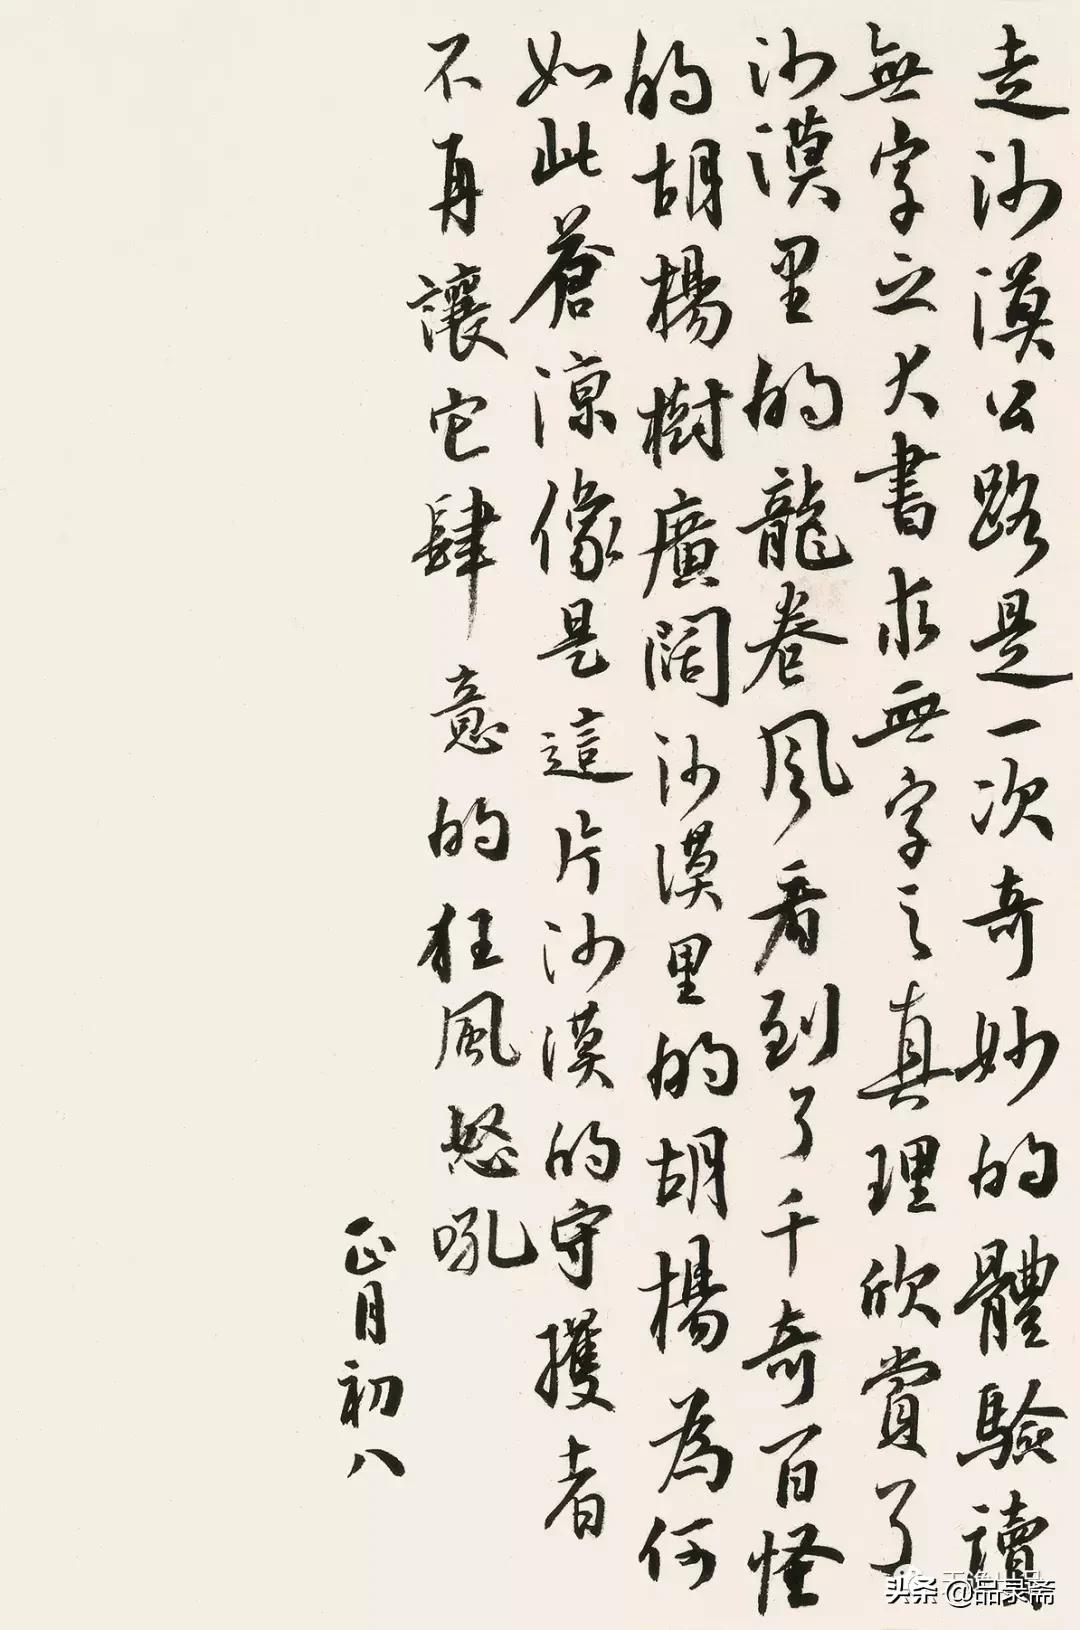 走沙漠公路是一次奇妙的體驗讀
無字之大書求無字之真理欣賞了
沙漠里的龍卷风看到了千奇百怪
的胡楊樹廣闊沙漠里的胡楊為何
如此蒼涼像是這片沙漠的守擭者
不再讓它肆意的狂風怒吼
正月初八
头条 @品录斋